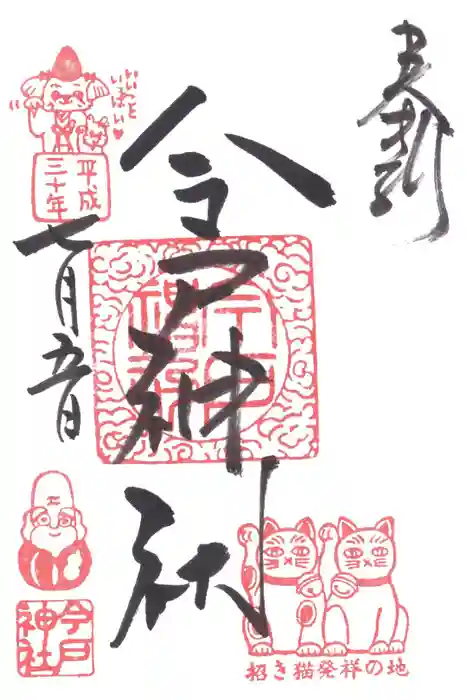 奉拝
いいこと
いっぱい♥
平成
三十年
七月五日
今戸神社
今戸
神社
今戸
神社
招き猫発祥の地